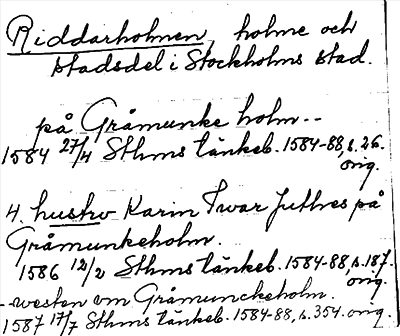 Riddarholmen, holme och
stadsdel i Stockholms stad.
på Gråmunke holm--
1584 27/4 Sthms tänkeb. 1584-88, s. 26.
orig.
4. hustrv Karin Ivar Juthes på
Gråmunkeholm.
1586 12/2 Sthms tänkeb. 1584-88, s. 187.
orig.
-westen om Gråmunckeholm.
1587 17/7 Sthms tänkeb. 1584-88, s. 354. orig.